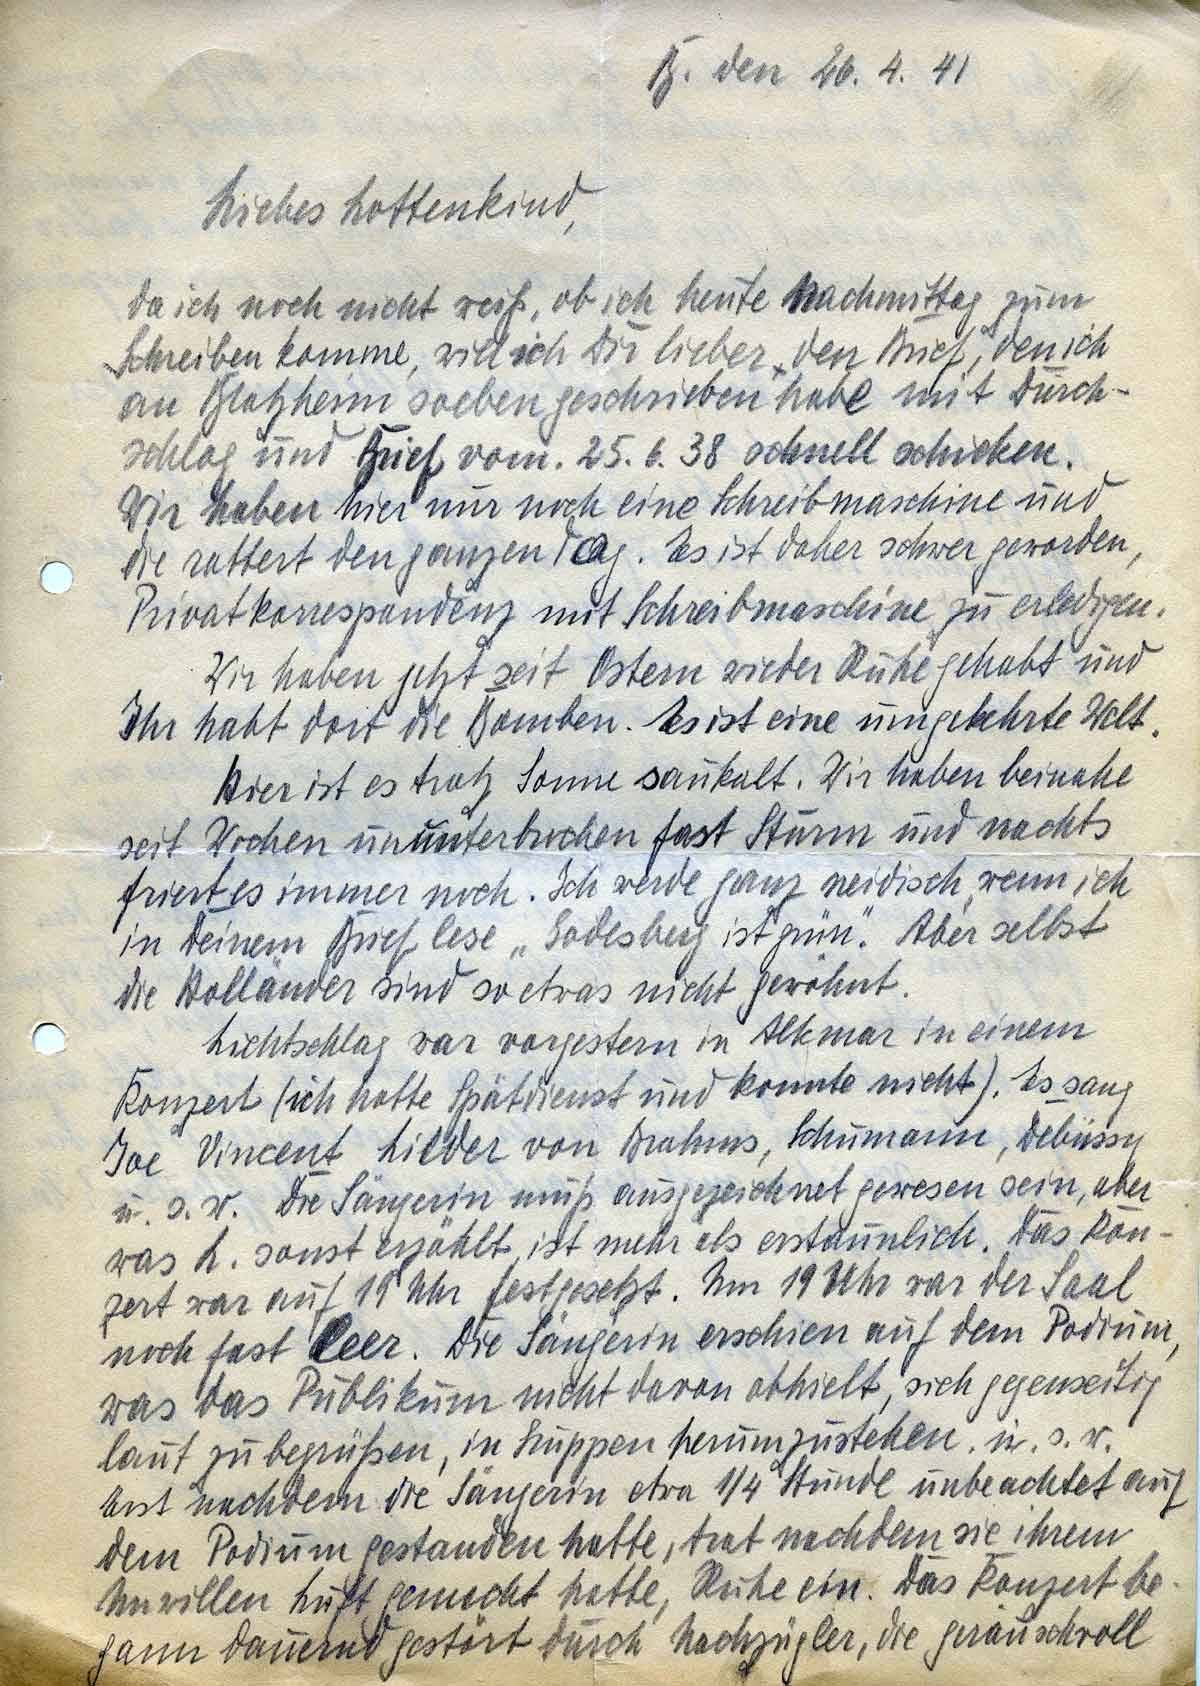 B. den 26. 4. 41
Liebes Lottenkind,
da ich noch nicht weiß, ob ich heute Nachmittag zum
Schreiben komme, will ich Dir lieber den Brief, den ich
an Blatzheim soeben geschrieben habe mit Durch-
schlag und Brief vom. 25. 6. 38 schnell schicken.
Wir haben hier nur noch eine Schreibmaschine und
die rattert den ganzen Tag. Es ist daher schwer geworden,
Privatkorrespondenz mit Schreibmaschine zu erledigen.
Wir haben jetzt seit Ostern wieder Ruhe gehabt und
Ihr habt dort die Bomben. Es ist eine umgekehrte Welt.
Hier ist es trotz Sonne saukalt. Wir haben beinahe
seit Wochen ununterbrochen fast Sturm und nachts
friert es immer noch. Ich werde ganz neidisch, wenn ich
in Deinem Brief lese „Godesberg ist grün“. Aber selbst
die Holländer sind so etwas nicht gewöhnt.
Lichtschlag war vorgestern in Alkmar in einem
Konzert (ich hatte Spätdienst und konnte nicht). Es sang
Joe Vincent Lieder von Brahms, Schumann, Debüssy
u. s. w. Die Sängerin muß ausgezeichnet gewesen sein, aber
was L. sonst erzählt, ist mehr als erstaunlich. Das Kon-
zert war auf 19 Uhr festgesetzt. Um 19 Uhr war der Saal
noch fast leer. Die Sängerin erschien auf dem Podium,
was das Publikum nicht davon abhielt, sich gegenseitig
laut zu begrüßen, in Gruppen herumzustehen. u. s. w.
Erst nachdem die Sängerin etwa 1/4 Stunde unbeachtet auf
dem Podium gestanden hatte, trat nachdem sie ihrem
Unwillen Luft gemacht hatte, Ruhe ein. Das Konzert be-
gann dauernd gestört durch Nachzügler, die geräuschvoll